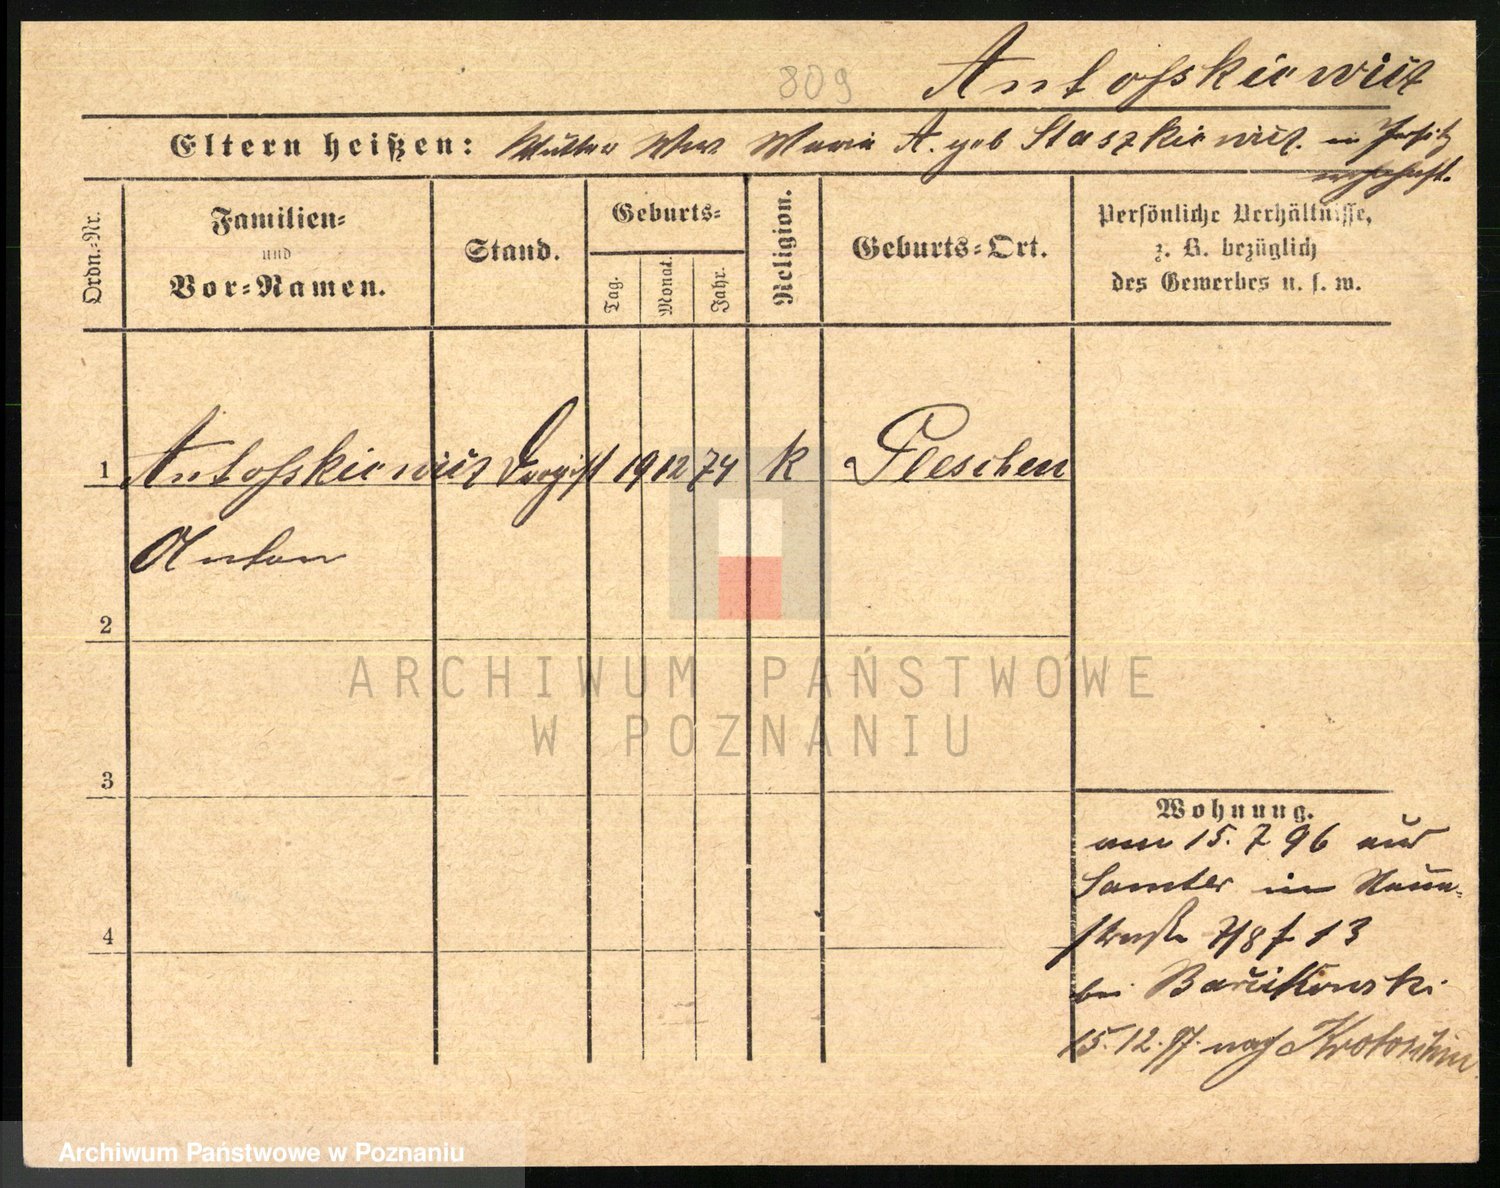 809
Antofskiewicz
Eltern heißen: Mutter Wwe Maria A. geb Staszkiewicz. in Jersitz
wohnhaft.
Ordn.-Nr.
Familien-
und
Vor-Namen.
Stand.
Geburts-
Tag.
Monat.
Jahr.
Religion.
Geburts-Ort.
Persönliche Verhältnisse,
z. B. bezüglich
des Gewerbes u. s. w.
1 Antofskiewicz 19 12 74 k Pleschen
Anton
2
3
4
Wohnung.
am 15. 7 96 aus
Samter in
straße 7/8 13
bei
15. 12. 97. nach Krotoschin
ARCHIWUM PAŃSTWOWE
W POZNANIU
Archiwum Państwowe w Poznaniu